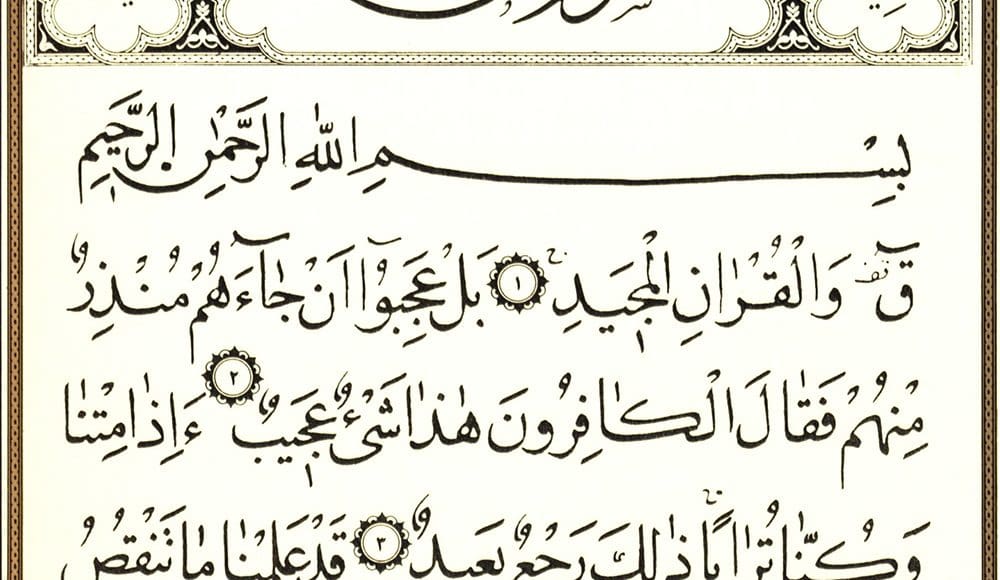 بِسْمِ اللّٰهِ الرَّحْمٰنِ الرَّحٖيمِ
قٓ قف وَالْقُرْاٰنِ الْمَجٖيدِ ج ١ بَلْ عَجِبُٓوا اَنْ جَٓاءَهُمْ مُنْذِرٌ
مِنْهُمْ فَقَالَ الْكَافِرُونَ هٰذَا شَیْءٌ عَجٖيبٌ ٢ ءَاِذَا مِتْنَا
وَكُنَّا تُرَابًا ج ذٰلِكَ رَجْعٌ بَعٖيدٌ ٣ قَدْ عَلِمْنَا مَا تَنْقُصُ